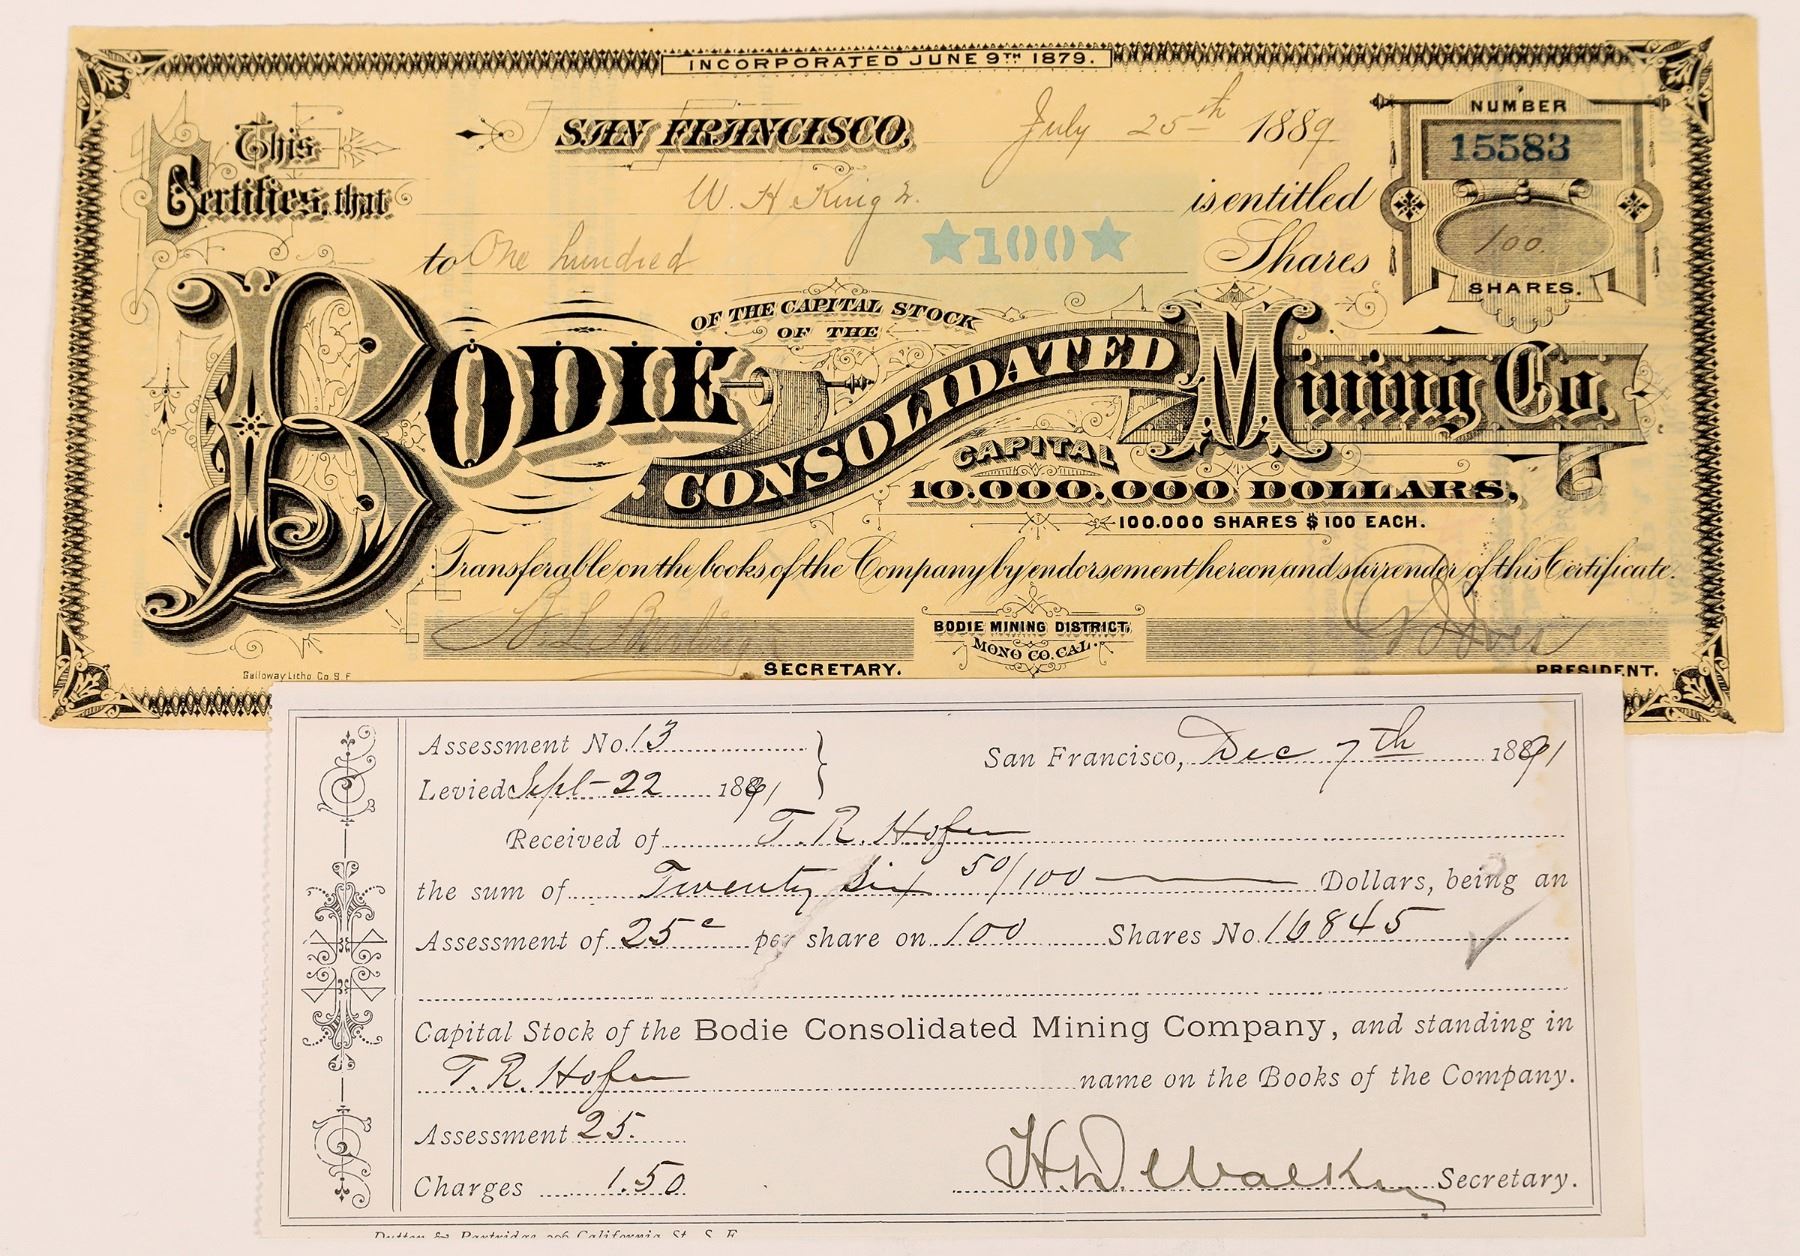 INCORPORATED JUNE 9TH 1879.
SAN FRANCISCO, July 25th 1889
NUMBER
15583
This
Certifies, that W. H King is entitled
to One hundred ★100★ Shares
100.
SHARES.
OF THE CAPITAL STOCK
OF THE
BODIE CONSOLIDATED Mining Co.
CAPITAL
10.000.000 DOLLARS,
100.000 SHARES $100 EACH.
Transferable on the books of the Company by endorsement hereon and surrender of this Certificate.
BODIE MINING DISTRICT,
MONO CO. CAL.
SECRETARY.
PRESIDENT.
Galloway Litho Co. S F
Assessment No. 13
San Francisco, Dec 7th 1891
Levied Sept - 22 1891
Received of T. R. Hofer
the sum of Twenty Six 50/100 Dollars, being an
Assessment of 25c per share on 100 Shares No. 16845
Capital Stock of the Bodie Consolidated Mining Company, and standing in
T. R. Hofer name on the Books of the Company.
Assessment 25.
Charges 1.50
H. D. Walker Secretary.
Dutton & Partridge 206 California St. S. F.